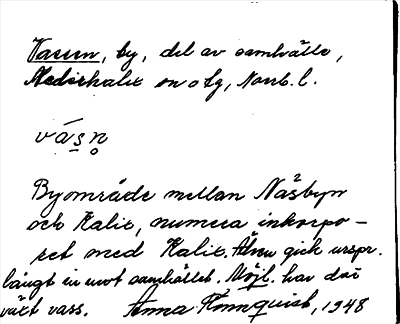 Vassen, by, del av samhälle,
Nederkalix sn o tg, Norrb. l.
vásn
Byområde mellan Näsbyn
och Kalix, numera inkorpo-
ret med Kalix. Älven gick urspr.
långt in mot samhället. Möjl. har där
växt vass. Anna Rönnquist, 1948